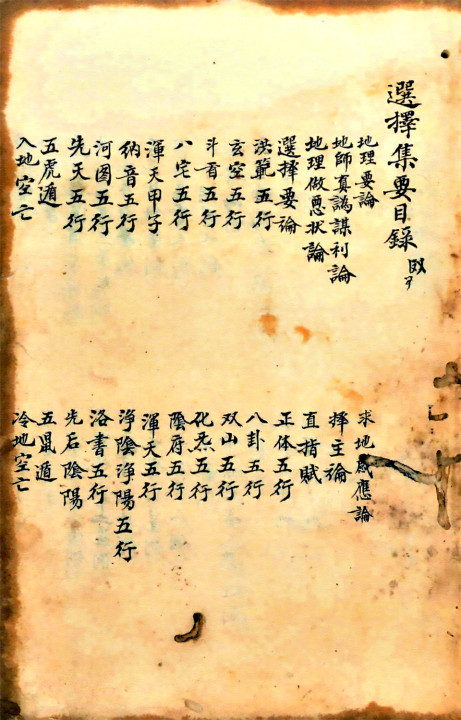 選擇集要目錄
地理要論
求地感應論
地師真譌謀利論
擇主論
地理做悪状論
直指賦
選擇要論
正体五行
洪範五行
八卦五行
玄空五行
双山五行
斗首五行
化炁五行
八宅五行
隂府五行
渾天甲子
渾天五行
納音五行
浄隂浄陽五行
河图五行
洛書五行
先天五行
先后隂陽
五虎遁
五鼠遁
入地空亡
冷地空亡